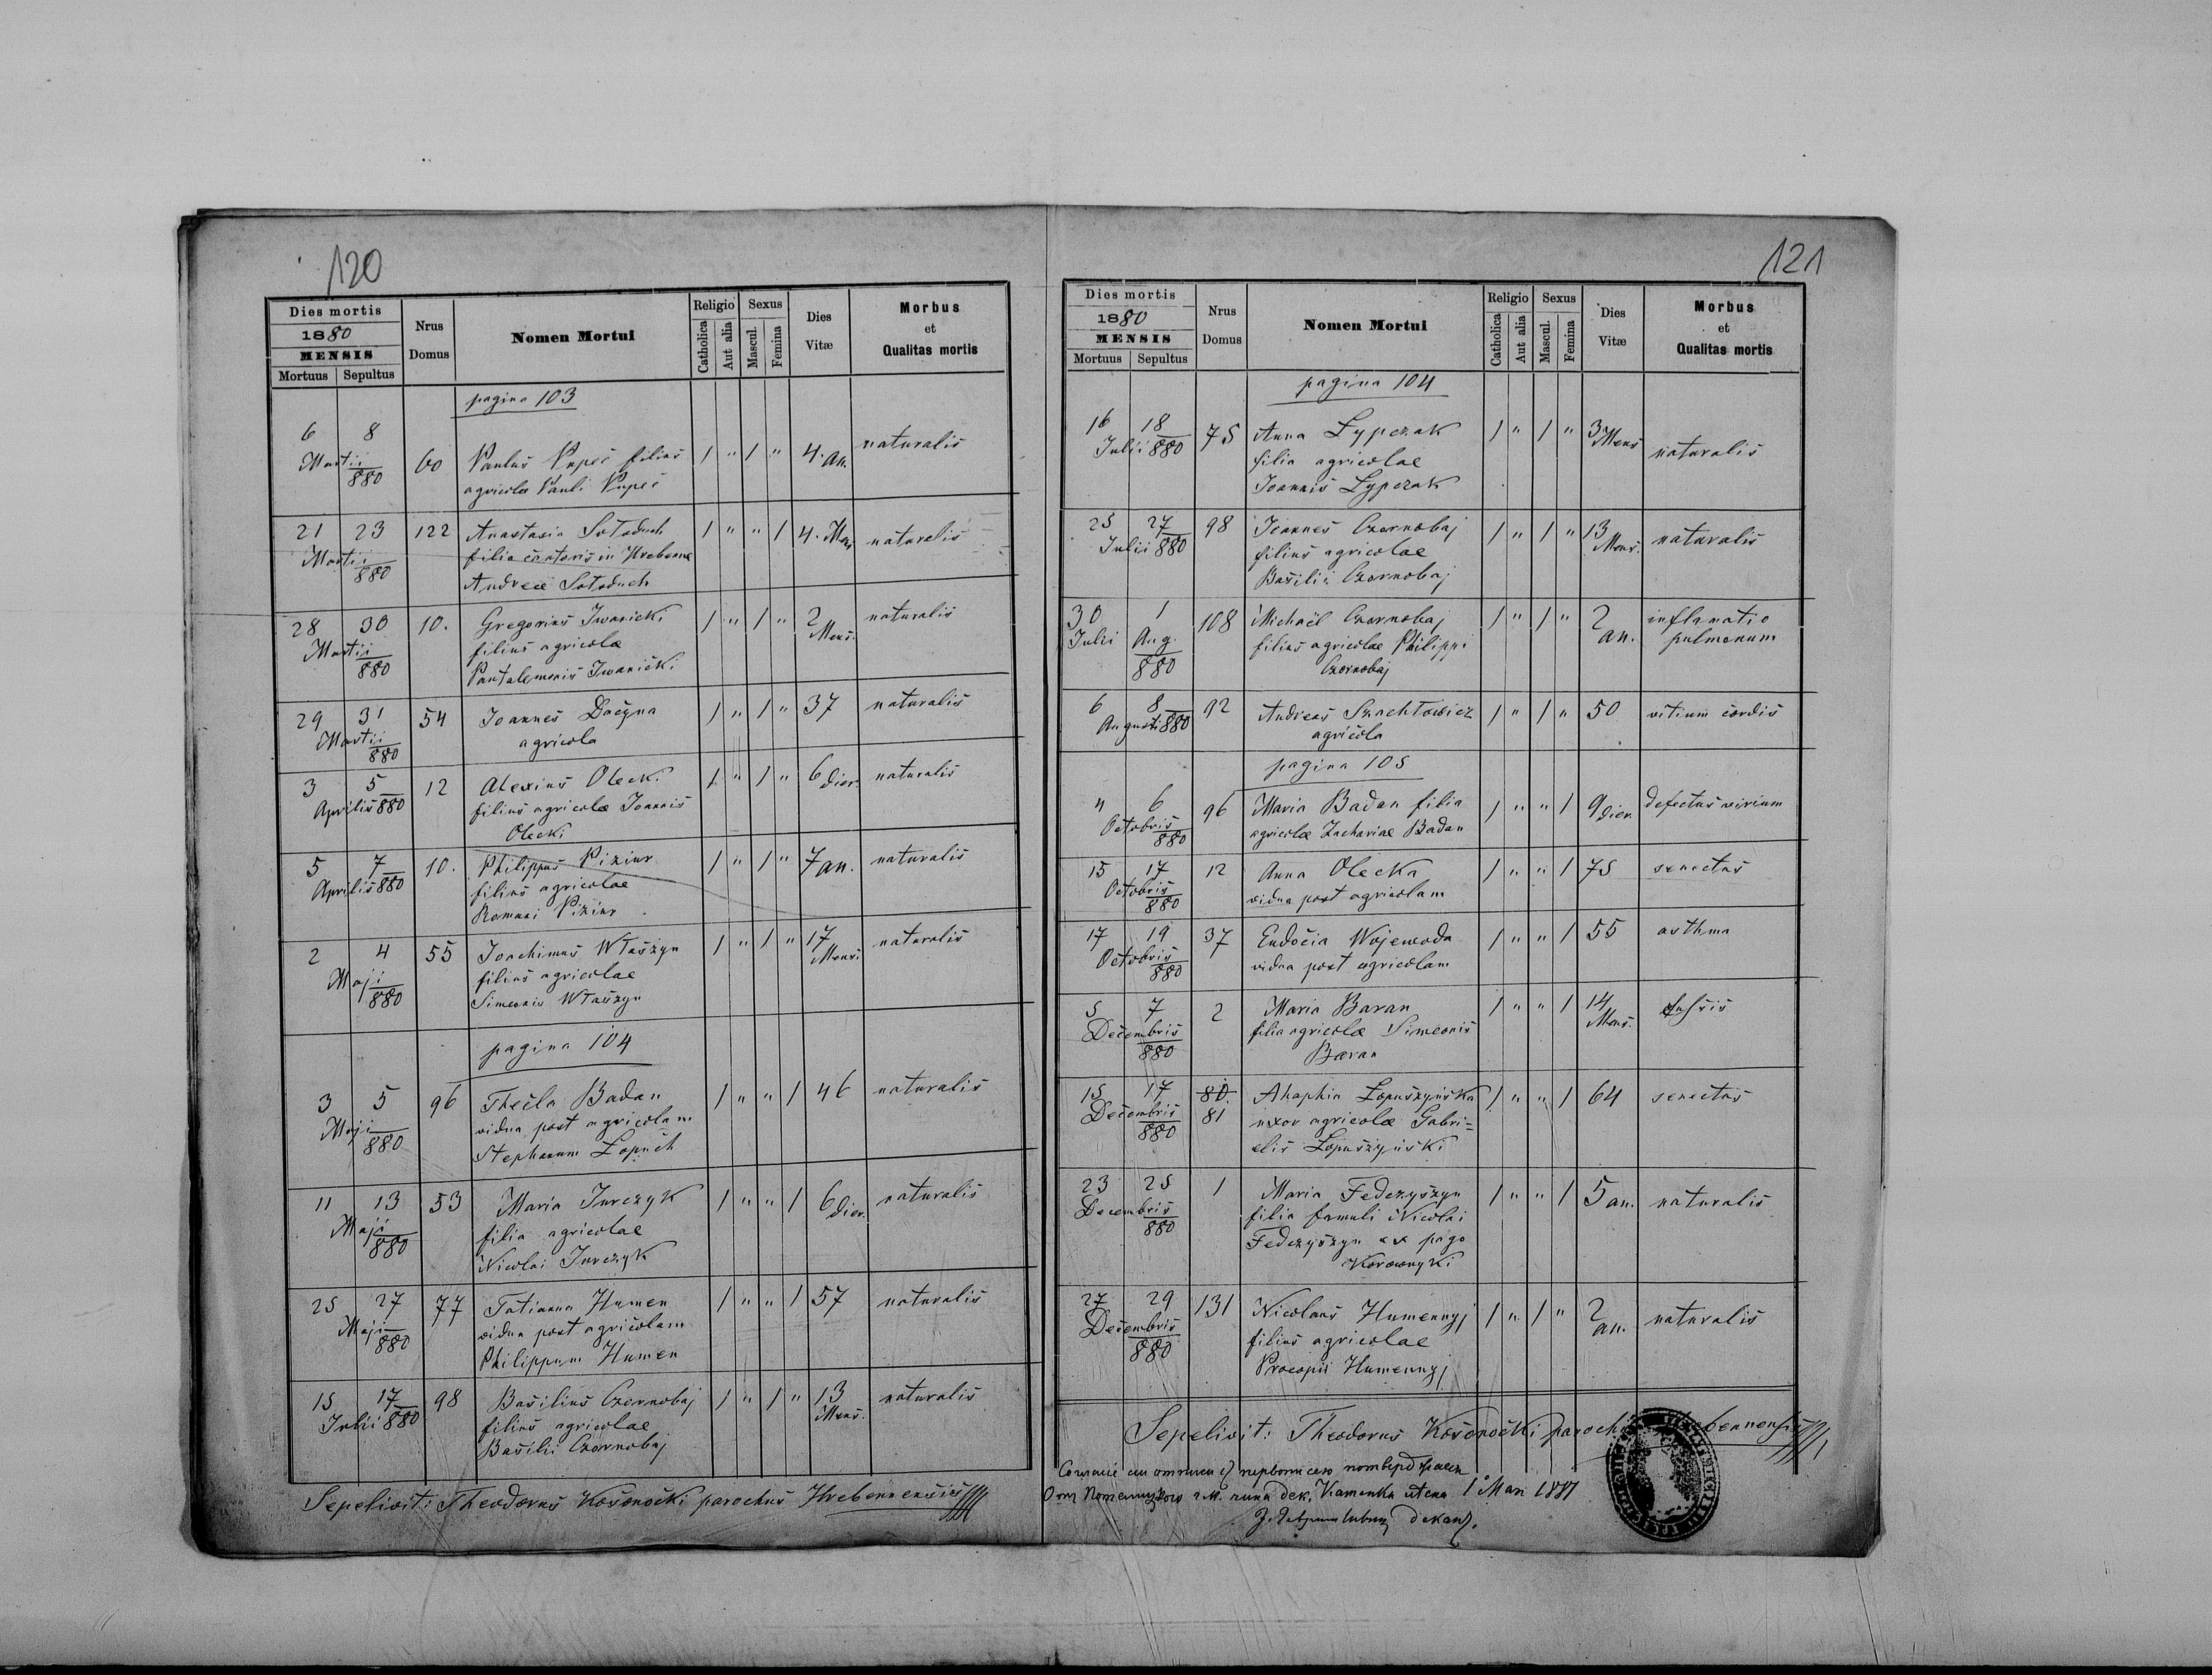 120
Dies mortis
1880
MENSIS
Mortuus Sepultus
Nrus
Domus
Nomen Mortui
Religio
Catholica
Aut alia
Sexus
Mascul.
Femina
Dies
Vitæ
Morbus
et
Qualitas mortis
pagina 103
6 8
Martii
880
60
Paulus Pupeć filius
agricolæ Pauli Pupeć
1 " 1 " 4. an. naturalis
21 23
Martii
880
122
Anastasia Sołoduch
filia cantoris in Hrebenne
Andreæ Sołoduch
1 " " 1 4. Mens naturalis
28 30
Martii
880
10.
Gregorius Iwanicki
filius agricolæ
Pantalemonis Iwanicki
1 " 1 " 2 Mens. naturalis
29 31
Martii
880
54
Joannes Dacyna
agricola
1 " 1 " 37 naturalis
3 5
Aprilis 880
12
Alexius Olecki
filius agricolæ Joannis
Olecki
1 " 1 " 6 dier. naturalis
5 7
Aprilis 880
10.
Philippus Piziur
filius agricolae
Romani Piziur
1 " 1 " 7 an. naturalis
2 4
Maji
880
55
Joachimus Właszyn
filius agricolae
Simeonis Właszyn
1 " 1 " 17 Mens. naturalis
pagina 104
3 5
Maji
880
96
Thecla Badan
vidua post agricolam
Stephanum Łopuch
1 " " 1 46 naturalis
11 13
Maji
880
53
Maria Jurczyk
filia agricolae
Nicolai Jurczyk
1 " " 1 6 dier. naturalis
25 27
Maji
880
77
Tatianna Humen
vidua post agricolam
Philippum Humen
1 " " 1 57 naturalis
15 17
Julii 880
98
Basilius Czornobaj
filius agricolae
Basilii Czornobaj
1 " 1 " 13 Mens. naturalis
Sepelivit: Theodorus Kosonocki parochus Hrebennensis
121
Dies mortis
1880
MENSIS
Mortuus Sepultus
Nrus
Domus
Nomen Mortui
Religio
Catholica
Aut alia
Sexus
Mascul.
Femina
Dies
Vitæ
Morbus
et
Qualitas mortis
pagina 104
16 18
Julii 880
75
Anna Lypczak
filia agricolae
Joannis Lypczak
1 " 1 " 3 Mens naturalis
25 27
Julii 880
98
Joannes Czornobaj
filius agricolae
Basilii Czornobaj
1 " 1 " 13 Mens. naturalis
30 1
Julii Aug.
880
108
Michaël Czornobaj
filius agricolae Philippi
Czornobaj
1 " 1 " 2 an. inflamatio
pulmonum
6 8
Augusti 880
92
Andreas Szachtowicz
agricola
1 " 1 " 50 vitium cordis
pagina 105
4 6
Octobris
880
96
Maria Badan filia
agricolæ Zachariae Badan
1 " " 1 9 dier. defectus virium
15 17
Octobris
880
12
Anna Olecka
vidua post agricolam
1 " " 1 75 senectus
17 19
Octobris
880
37
Eudocia Wojewoda
vidua post agricolam
1 " " 1 55 asthma
5 7
Decembris
880
2
Maria Baran
filia agricolæ Simeonis
Baran
1 " " 1 14 Mens. tussis
15 17
Decembris
880
80.
81
Ahaphia Łopuszyńska
uxor agricolæ Gabri=
elis Łopuszyński
1 " " 1 64 senectus
23 25
Decembris
880
1
Maria Fedczyszyn
filia famuli Nicolai
Fedczyszyn ex pago
1 " " 1 5 an. naturalis
27 29
Decembris
880
131
Nicolaus Humennyj
filius agricolae
Procopii Humennyj
1 " 1 " 2 an. naturalis
Sepelivit: Theodorus Kosonocki paroch
1 Мая 1881